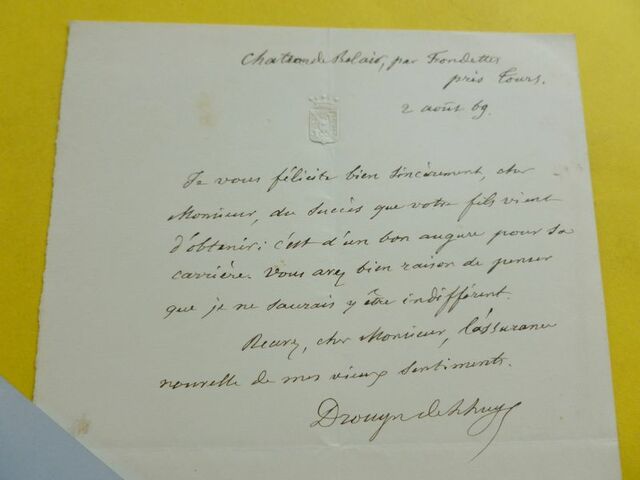 Chateau de Relais, par Fondettes
près Tours.
2 août 69.
Je vous félicite bien sincèrement, cher
Monsieur, du succès que votre fils vient
d'obtenir; c'est d'un bon augure pour sa
carrière. Vous avez bien raison de penser
que je ne saurais y être indifférent.
Recevez, cher Monsieur, l'assurance
nouvelle de mes vieux sentiments.
Drouyn de Lhuys